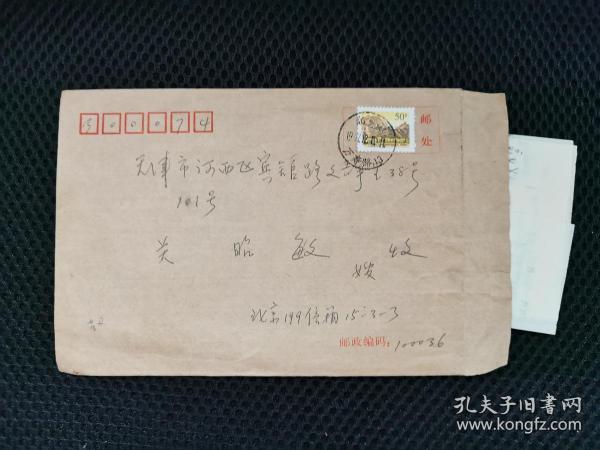 300074
50分
邮
处
天津市河西区宾馆路文静里38号
101号
吴昭敏 嫂收
北京199信箱15-3-3
邮政编码：100036
孔夫子旧书网
www.kongfz.com